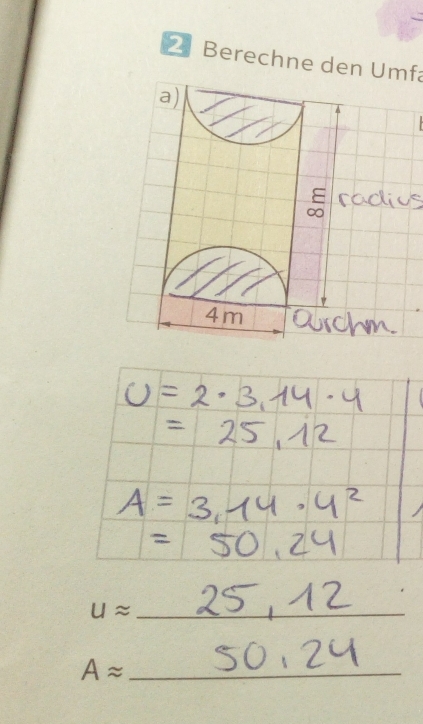 2 Berechne den Umfa
a)
8 m radius
4 m durchm.
U = 2 · 3,14 · 4
= 25,12
A = 3,14 · 4²
= 50,24
u ≈ 25,12
A ≈ 50,24